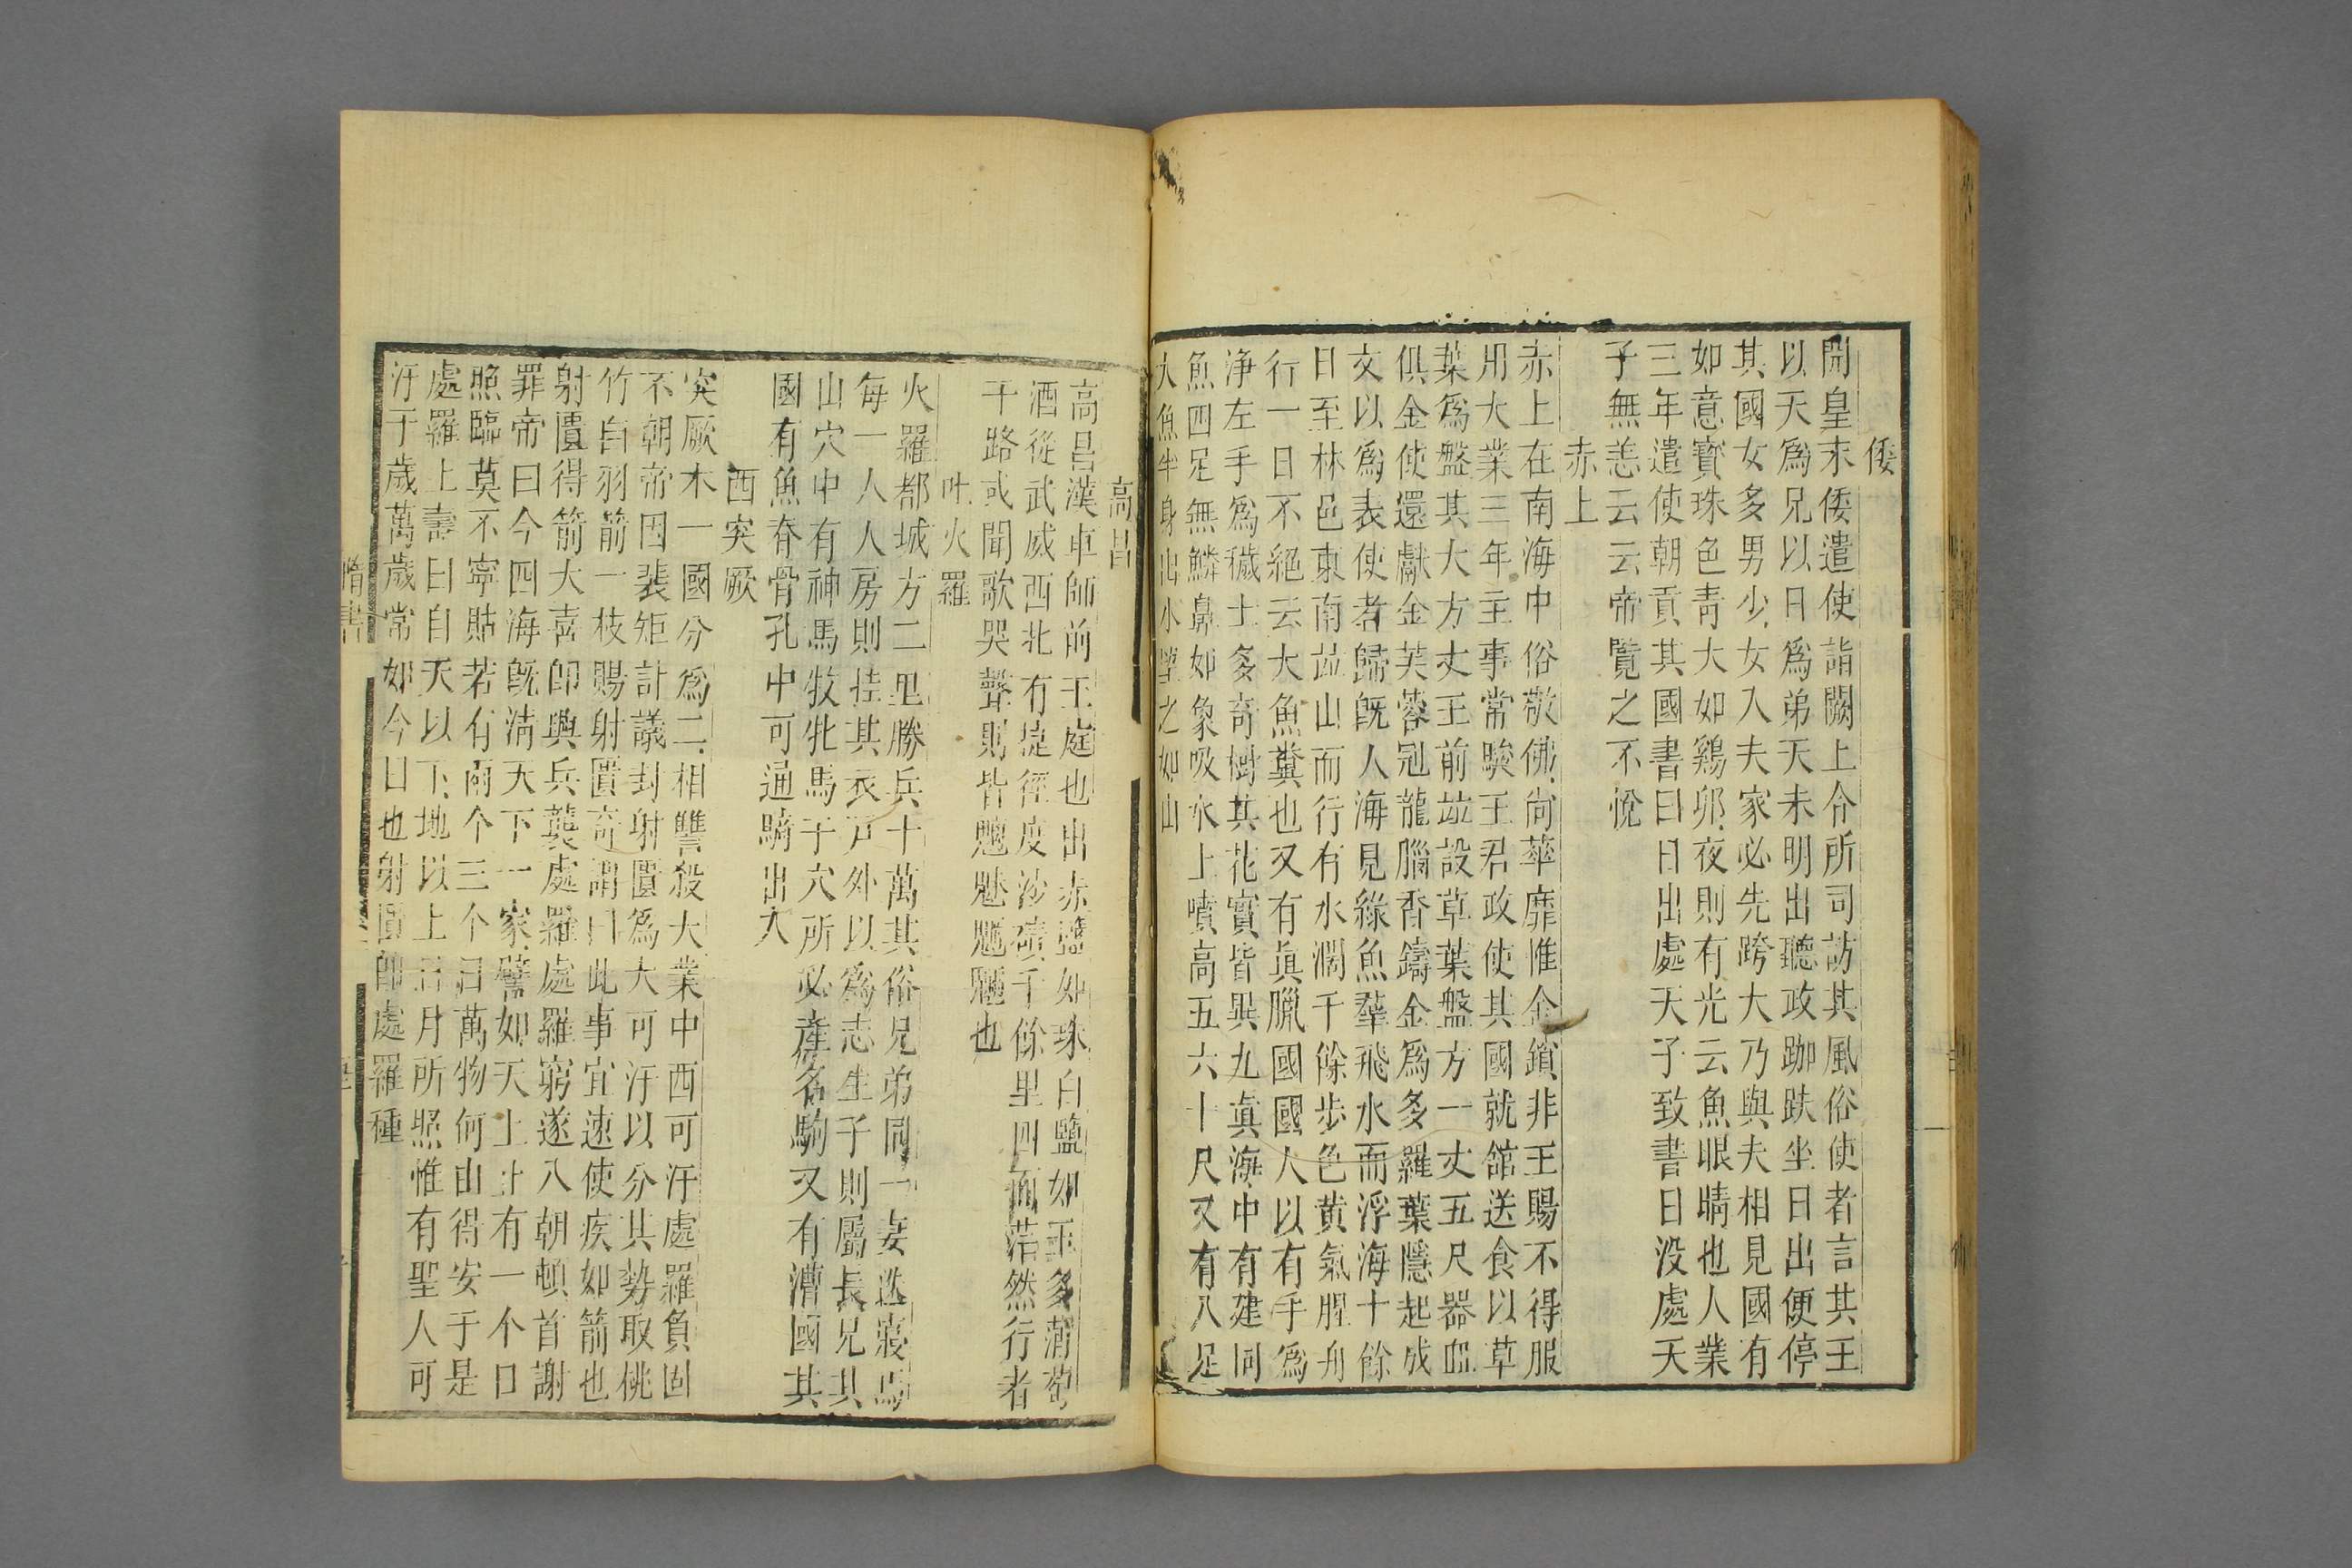 倭
開皇末倭遣使詣闕上令所司訪其風俗使者言其王
以天為兄以日為弟天未明出聽政跏趺坐日出便停
其國女多男少女入夫家必先跨大乃與夫相見國有
如意寳珠色青大如鷄卵夜則有光云魚眼睛也人業
三年遣使朝貢其國書曰日出處天子致書日没處天
子無恙云云帝覽之不悅
赤上
赤上在南海中俗敬佛尚華靡惟金鎖非王賜不得服
用大業三年主事常駿王君政使其國就舘送食以草
葉為盤其大方丈王前竝設草葉盤方一丈五尺器皿
俱金使還獻金芙蓉冠龍腦香鑄金為多羅葉隱起成
文以為表使者歸既人海見綠魚羣飛水而浮海十餘
日至林邑東南竝山而行有水濶千餘步色黄氣腥舟
行一日不絕云大魚糞也又有真臘國國人以有手為
浄左手為穢土多奇樹其花實皆異九真海中有建同
魚四足無鱗鼻如象吸水上噴高五六十尺又有八足
大魚半身出水望之如山
高昌
高昌漢車師前王庭也出赤鹽如珠白鹽如玉多蒲萄
酒從武威西北有捷徑度沙磧千餘里四面茫然行者
于路或聞歌哭聲則皆魍魅魑魎也
吐火羅
火羅都城方二里勝兵十萬其俗兄弟同一妻迭寢焉
每一人人房則挂其衣戸外以為志生子則屬長兄其
山穴中有神馬牧牝馬于穴所必産名駒又有漕國其
國有魚脊骨孔中可通騎出入
西突厥
突厥木一國分為二相讐殺大業中西可汗處羅負固
不朝帝因裴矩計議封射匱為大可汗以分其勢取佻
竹白羽箭一枝賜射匱奇謂曰此事宜速使疾如箭也
射匱得箭大喜卽與兵襲處羅處羅窮遂入朝頓首謝
罪帝曰今四海既清天下一家譬如天上止有一个日
照臨莫不寧貼若有兩个三个日萬物何由得安于是
處羅上壽曰自天以下地以上日月所照惟有聖人可
汗千歲萬歲常如今日也射匱卽處羅種
隋書